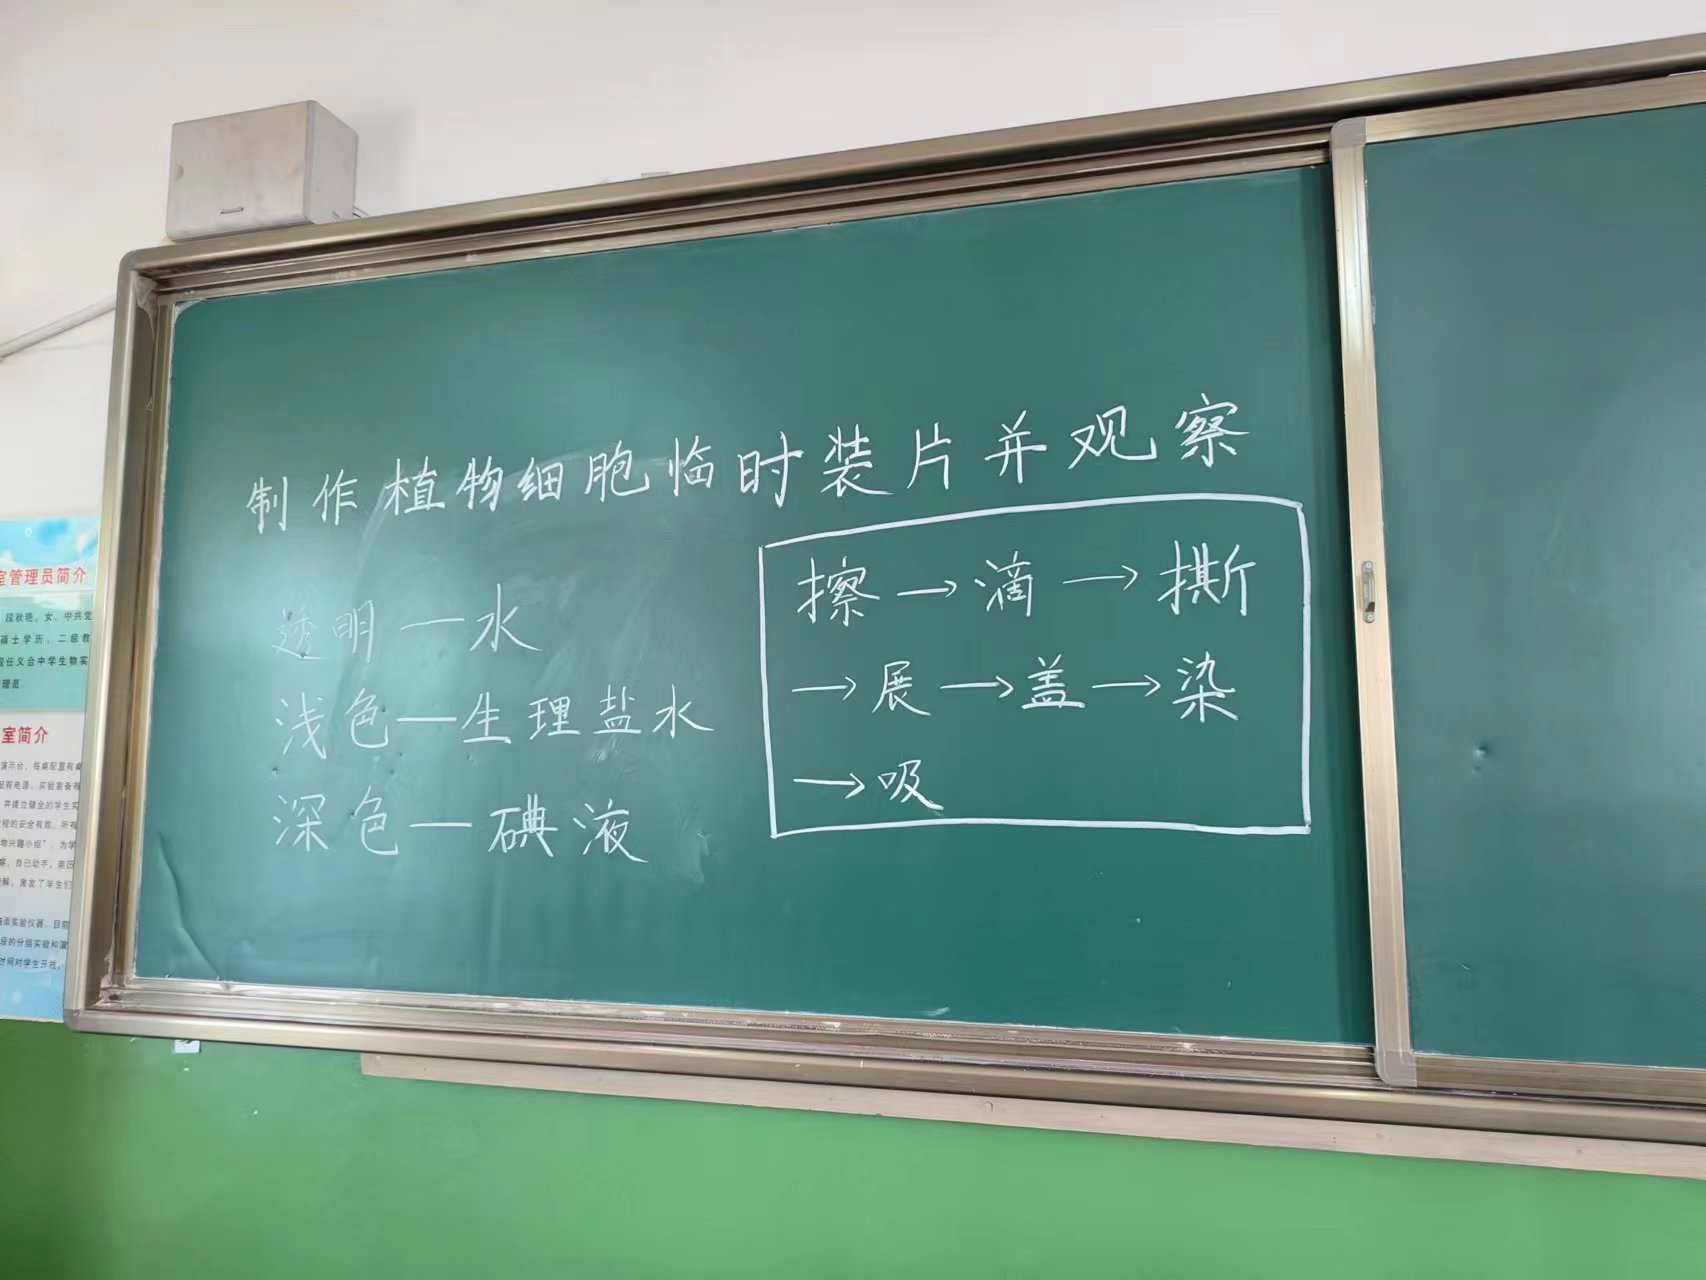 制作植物细胞临时装片并观察
透明—水
浅色—生理盐水
深色—碘液
擦→滴→撕
→展→盖→染
→吸
室管理员简介
段秋艳，女，中共党
硕士学历，二级教
现任义合中学生物实
理员。
室简介
演示台，每桌配置有桌
配有电源，实验室备有
并建立健全的学生实
程的安全有效。所有
物兴趣小组”，为学
自己动手，亲历
解，激发了学生们
添实验仪器，目前
段的分组实验和演
时间对学生开放。